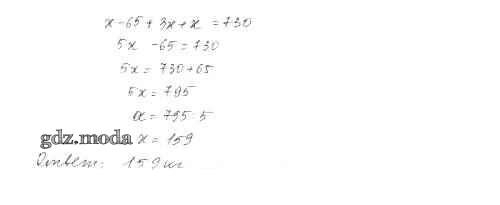 x - 65 + 3x + x = 730
5x - 65 = 730
5x = 730 + 65
5x = 795
x = 795 : 5
gdz.moda x = 159
Ответ: 159 кг